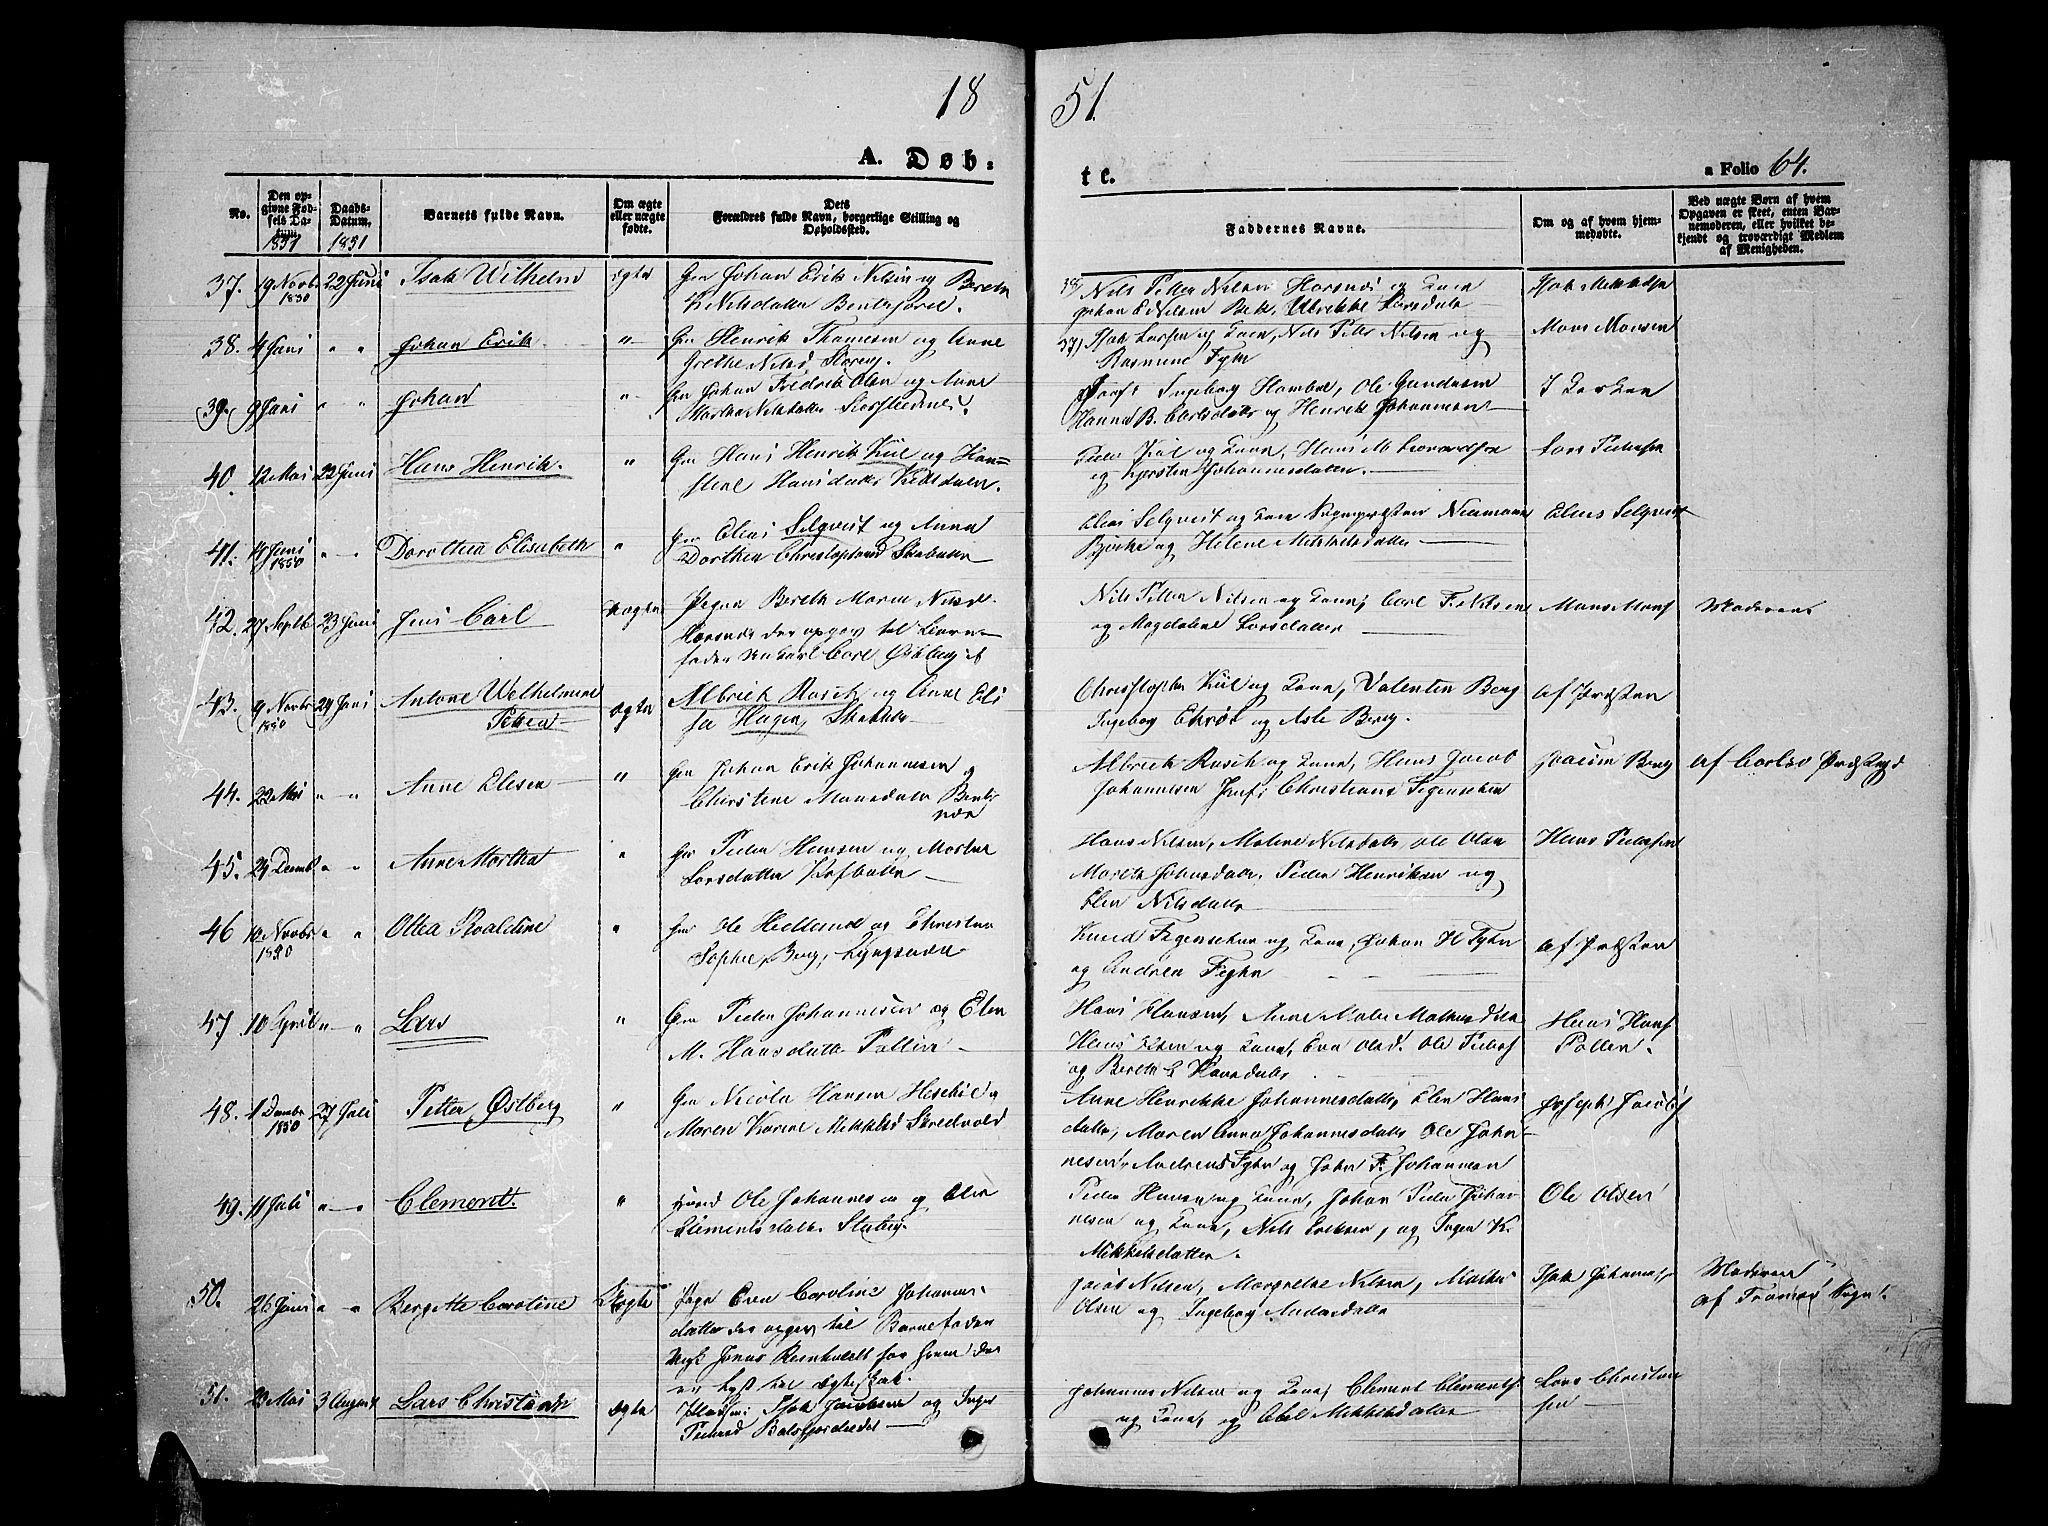 18 51.
A. Døb- te.
a Folio 64.
No.
Den op-
givne Fød-
sels Da-
tum.
1851
Daabs-
Datum.
1851
Barnets fulde Navn.
Om ægte
eller uægte
fødte.
Dets
Forældres fulde Navn, borgerlige Stilling og
Opholdssted.
Faddernes Navne.
Om og af hvem hjem-
medøbte.
Ved uægte Børn af hvem
Opgaven er skeet, enten Bar-
nemoderen, eller hvilket be-
kjendt og troværdigt Medlem
af Menigheden.
37. 19 Novbr 1850 22 Juni Isak Wilhelm ægte Gm Johan Erik Nilsen og Bereth
Nilsdatter
38) Nils Petter Nilsen Horsnæs og Kone
Johan E Nilsen Ulrikke Larsdatter
38. 4 Juni " " Johan Erik " Gm Henrik Thomesen og Anne
Grethe Nilsd
37) Isak Larsen og Kone, Nils Petter Nilsen og
Rasmine Fyhn
Mons Monsen
39. 9 Juni " " Johan " Gm Johan Fredrik Olsen og Anne
Martha Nilsdatter
Ingeborg Ole Gundersen
Hanna B. Carlsdatter og Henrik Johannesen
I Kirken
40. 12 Mai 22 Juni Hans Henrik. " Gm Hans Henrik Kiil og Han-
sine Hansdatter
Peder Kiil og Kone, Hans M
og Kjersten Johannesdatter.
Lars Pedersen
41. 14 Juni 1850 " " Dorothea Elisabeth " Gm Elias Selqvist og Anna
Dorthea
Elias Selqvist og Kone Sognepræsten Neumann
Bjerke og Helene Mikkelsdatter
Elias Selqvist
42. 27 Septb 23 Juni Jens Carl uægte Pigen Bereth Maren Nilsd.
Horsnæs der opgav til Barne-
fader Ungkarl Carl Østberg
Nils Petter Nilsen og Kone, Carl F. Nilsen
og Magdalene Larsdatter
Mons Mons
Moderen
43. 9 Novbr 1850 24 Juni Antone Wilhelmine
Petrea ægte Albrick Rasch og Anne Eli
sa Hagen,
Christopher Kiil og Kone, Valentin Berg
Ingeborg og Berg.
af Præsten
44. 22 Mai " " Anne Elisen " Gm Johan Erik Johannesen og
Christine Monsdatter
Albrick Rasch og Kone, Hans Jacob
Johannesen Jmfr Christiane Figenschou
Joacim Berg
af Carlsø Præstegd
45. 29 Decmb " " Anne Martha " Gm Peder Hansen og Martha
Larsdatter
Hans Nilsen, Maline Nilsdatter Ole Olsen
Mareth Johnsdatter, Peder Henriksen og
Elen Nilsdatter
Hans Pedersen
46 10 Novbr 1850 " " Oltea " Gm Ole Hedlund og Christine
Sophie Berg, Lyngseidet
Knud Figenschou og Kone, Johan H Fyhn
og Andrea Fyhn
af Præsten
47. 10 April " " Lars " Gm Peder Johannesen og Elen
M. Hansdatter Pollen
Hans Hansen, Anne
Hans og Kone, Eva Olsd. Ole Peders
og Bereth Hansdatter
Hans Hans
Pollen.
48. 1 Decmbr 1850 27 Juli Petter Østberg " Gm Nicolai Hansen og
Maren Karine Mikkelsd Skredvold
Anne Henrikke Johannesdatter, Elen Hans
datter, Maren Anna Johannesdatter Ole Johan-
nesen, Andreas Fyhn og John F. Johannesen
Joseph Jacobs
49. 11 Juli " " Clemont. " Gmd Ole Johannesen og Elen
Clementsdatter
Peder Hansen og Kone, Johan Peder Johan-
nesen og Kone, Nils Eriksen, og Inger K.
Mikkelsdatter.
Ole Olsen
50. 26 Juni " " Bergette Caroline Uægte Pign Eva Caroline Johannes-
datter der opgav til Barnefader
Ungk Jonas Reinholdt for hvem der
er lyst til Ægteskab.
Jacob Nilsen, Margrethe Nilsen, Mathis
Olsen og Ingeborg Andersdatter
Isak Johannes
Moderen
af Tromsø Sogn.
51. 23 Mai 3 August Lars Christian ægte Isak Jacobsen og Inger
Pedersd Balsfjordeidet
Johannes Nilsen og Kone, Clement Clements.
og Kone, og Abel Mikkelsdatter
Lars Christian
sen